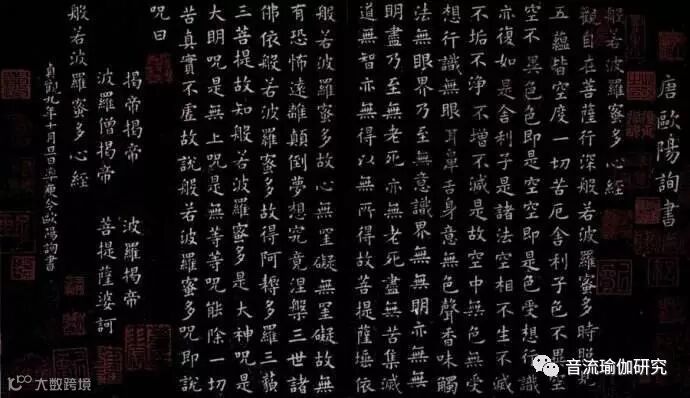 唐歐陽詢書
般若波羅蜜多心經
觀自在菩薩行深般若波羅蜜多時照見
五蘊皆空度一切苦厄舍利子色不異空
空不異色色即是空空即是色受想行識
亦復如是舍利子是諸法空相不生不滅
不垢不淨不增不減是故空中無色無受
想行識無眼耳鼻舌身意無色聲香味觸
法無眼界乃至無意識界無無明亦無無
明盡乃至無老死亦無老死盡無苦集滅
道無智亦無得以無所得故菩提薩埵依
般若波羅蜜多故心無罣礙無罣礙故無
有恐怖遠離顛倒夢想究竟涅槃三世諸
佛依般若波羅蜜多故得阿耨多羅三藐
三菩提故知般若波羅蜜多是大神呪是
大明呪是無上呪是無等等呪能除一切
苦真實不虛故說般若波羅蜜多呪即說
呪曰
揭帝揭帝 波羅揭帝
波羅僧揭帝 菩提薩婆訶
般若波羅蜜多心經
貞觀九年十月旦日率更令歐陽詢書
大数跨境
音流瑜伽研究